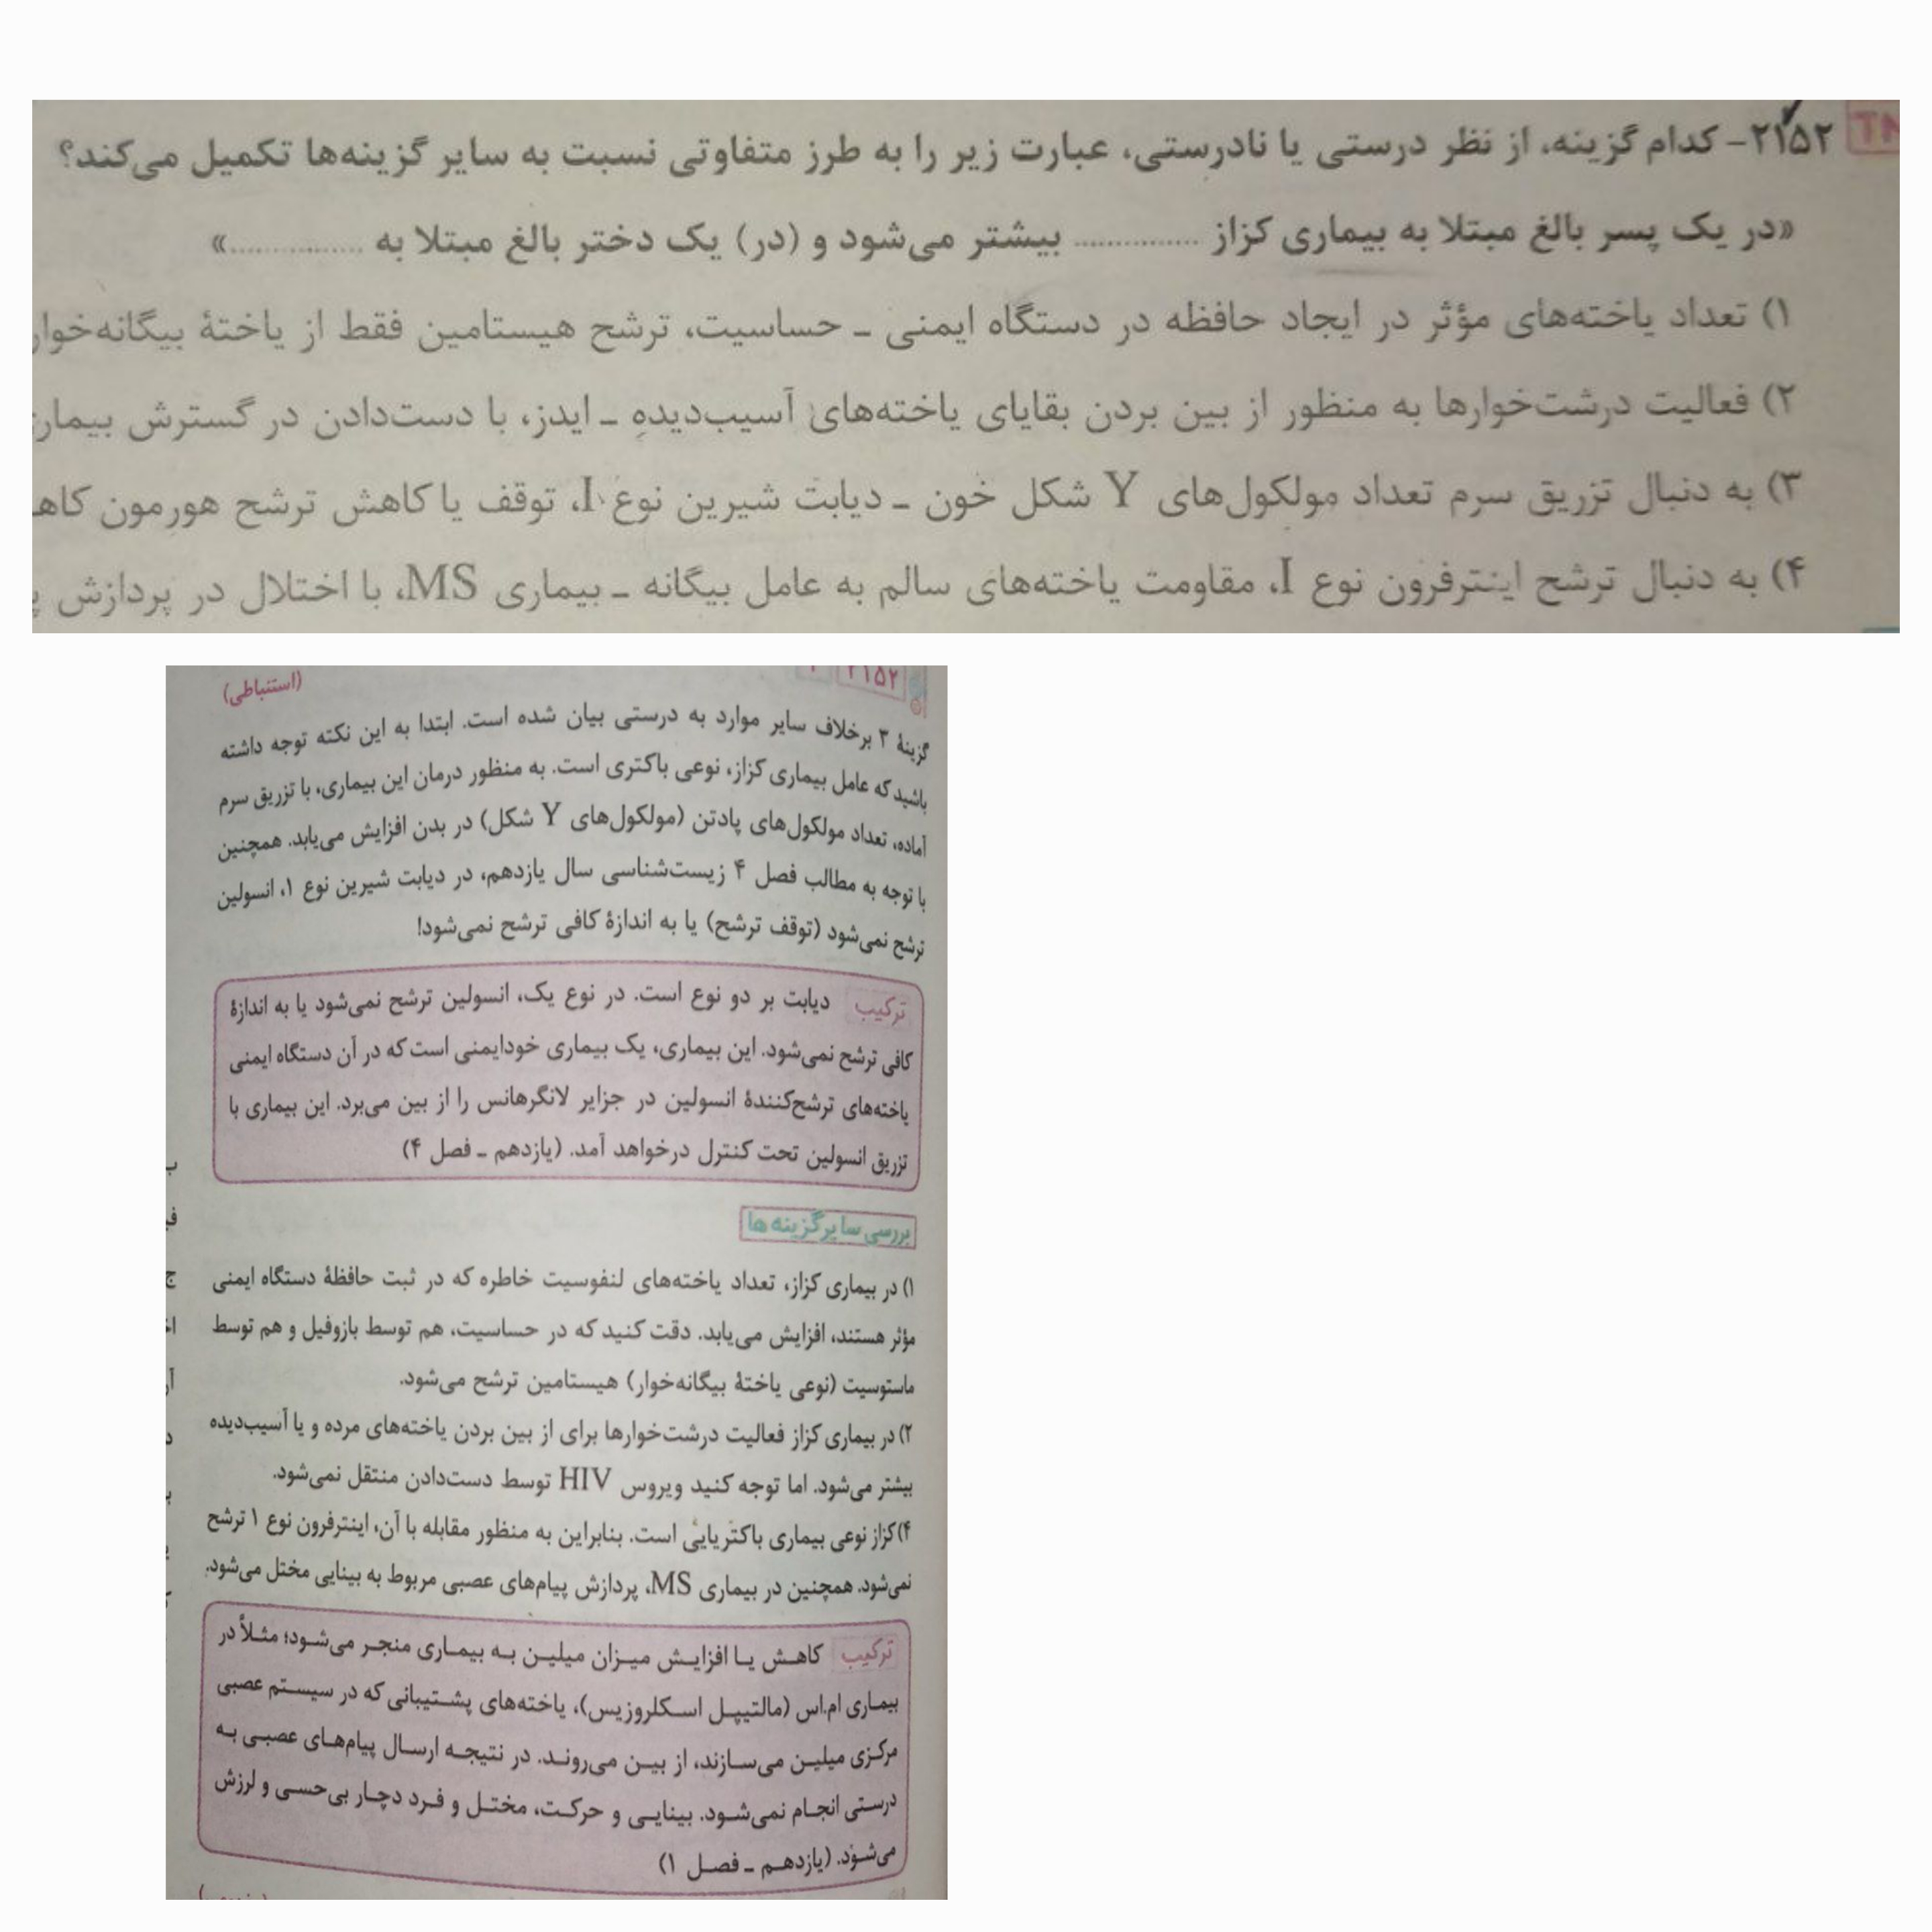 ۲۱۵۲- کدام گزینه، از نظر درستی یا نادرستی، عبارت زیر را به طرز متفاوتی نسبت به سایر گزینه‌ها تکمیل می‌کند؟
«در یک پسر بالغ مبتلا به بیماری کزاز ............... بیشتر می‌شود و (در) یک دختر بالغ مبتلا به ...............»
۱) تعداد یاخته‌های مؤثر در ایجاد حافظه در دستگاه ایمنی ـ حساسیت، ترشح هیستامین فقط از یاختهٔ بیگانه‌خوار
۲) فعالیت درشت‌خوارها به منظور از بین بردن بقایای یاخته‌های آسیب‌دیده ـ ایدز، با دست‌دادن در گسترش
۳) به دنبال تزریق سرم تعداد مولکول‌های Y شکل خون ـ دیابت شیرین نوع I، توقف یا کاهش ترشح هورمون
۴) به دنبال ترشح اینترفرون نوع I، مقاومت یاخته‌های سالم به عامل بیگانه ـ بیماری MS، با اختلال در پردازش
۲۱۵۲
(استنباطی)
گزینهٔ ۳ برخلاف سایر موارد به درستی بیان شده است. ابتدا به این نکته توجه داشته
باشید که عامل بیماری کزاز، نوعی باکتری است. به منظور درمان این بیماری، با تزریق سرم
آماده، تعداد مولکول‌های پادتن (مولکول‌های Y شکل) در بدن افزایش می‌یابد. همچنین
با توجه به مطالب فصل ۴ زیست‌شناسی سال یازدهم، در دیابت شیرین نوع ۱، انسولین
ترشح نمی‌شود (توقف ترشح) یا به اندازهٔ کافی ترشح نمی‌شود!
ترکیب دیابت بر دو نوع است. در نوع یک، انسولین ترشح نمی‌شود یا به اندازهٔ
کافی ترشح نمی‌شود. این بیماری، یک بیماری خودایمنی است که در آن دستگاه ایمنی
یاخته‌های ترشح‌کنندهٔ انسولین در جزایر لانگرهانس را از بین می‌برد. این بیماری با
تزریق انسولین تحت کنترل درخواهد آمد. (یازدهم ـ فصل ۴)
بررسی سایر گزینه ها
۱) در بیماری کزاز، تعداد یاخته‌های لنفوسیت خاطره که در ثبت حافظهٔ دستگاه ایمنی
مؤثر هستند، افزایش می‌یابد. دقت کنید که در حساسیت، هم توسط بازوفیل و هم توسط
ماستوسیت (نوعی یاختهٔ بیگانه‌خوار) هیستامین ترشح می‌شود.
۲) در بیماری کزاز فعالیت درشت‌خوارها برای از بین بردن یاخته‌های مرده و یا آسیب‌دیده
بیشتر می‌شود. اما توجه کنید ویروس HIV توسط دست‌دادن منتقل نمی‌شود.
۴) کزاز نوعی بیماری باکتریایی است. بنابراین به منظور مقابله با آن، اینترفرون نوع ۱ ترشح
نمی‌شود. همچنین در بیماری MS، پردازش پیام‌های عصبی مربوط به بینایی مختل می‌شود.
ترکیب کاهش یا افزایش میزان میلین به بیماری منجر می‌شود؛ مثلاً در
بیماری ام.اس (مالتیپل اسکلروزیس)، یاخته‌های پشتیبانی که در سیستم عصبی
مرکزی میلین می‌سازند، از بین می‌روند. در نتیجه ارسال پیام‌های عصبی به
درستی انجام نمی‌شود. بینایی و حرکت، مختل و فرد دچار بی‌حسی و لرزش
می‌شود. (یازدهم ـ فصل ۱)